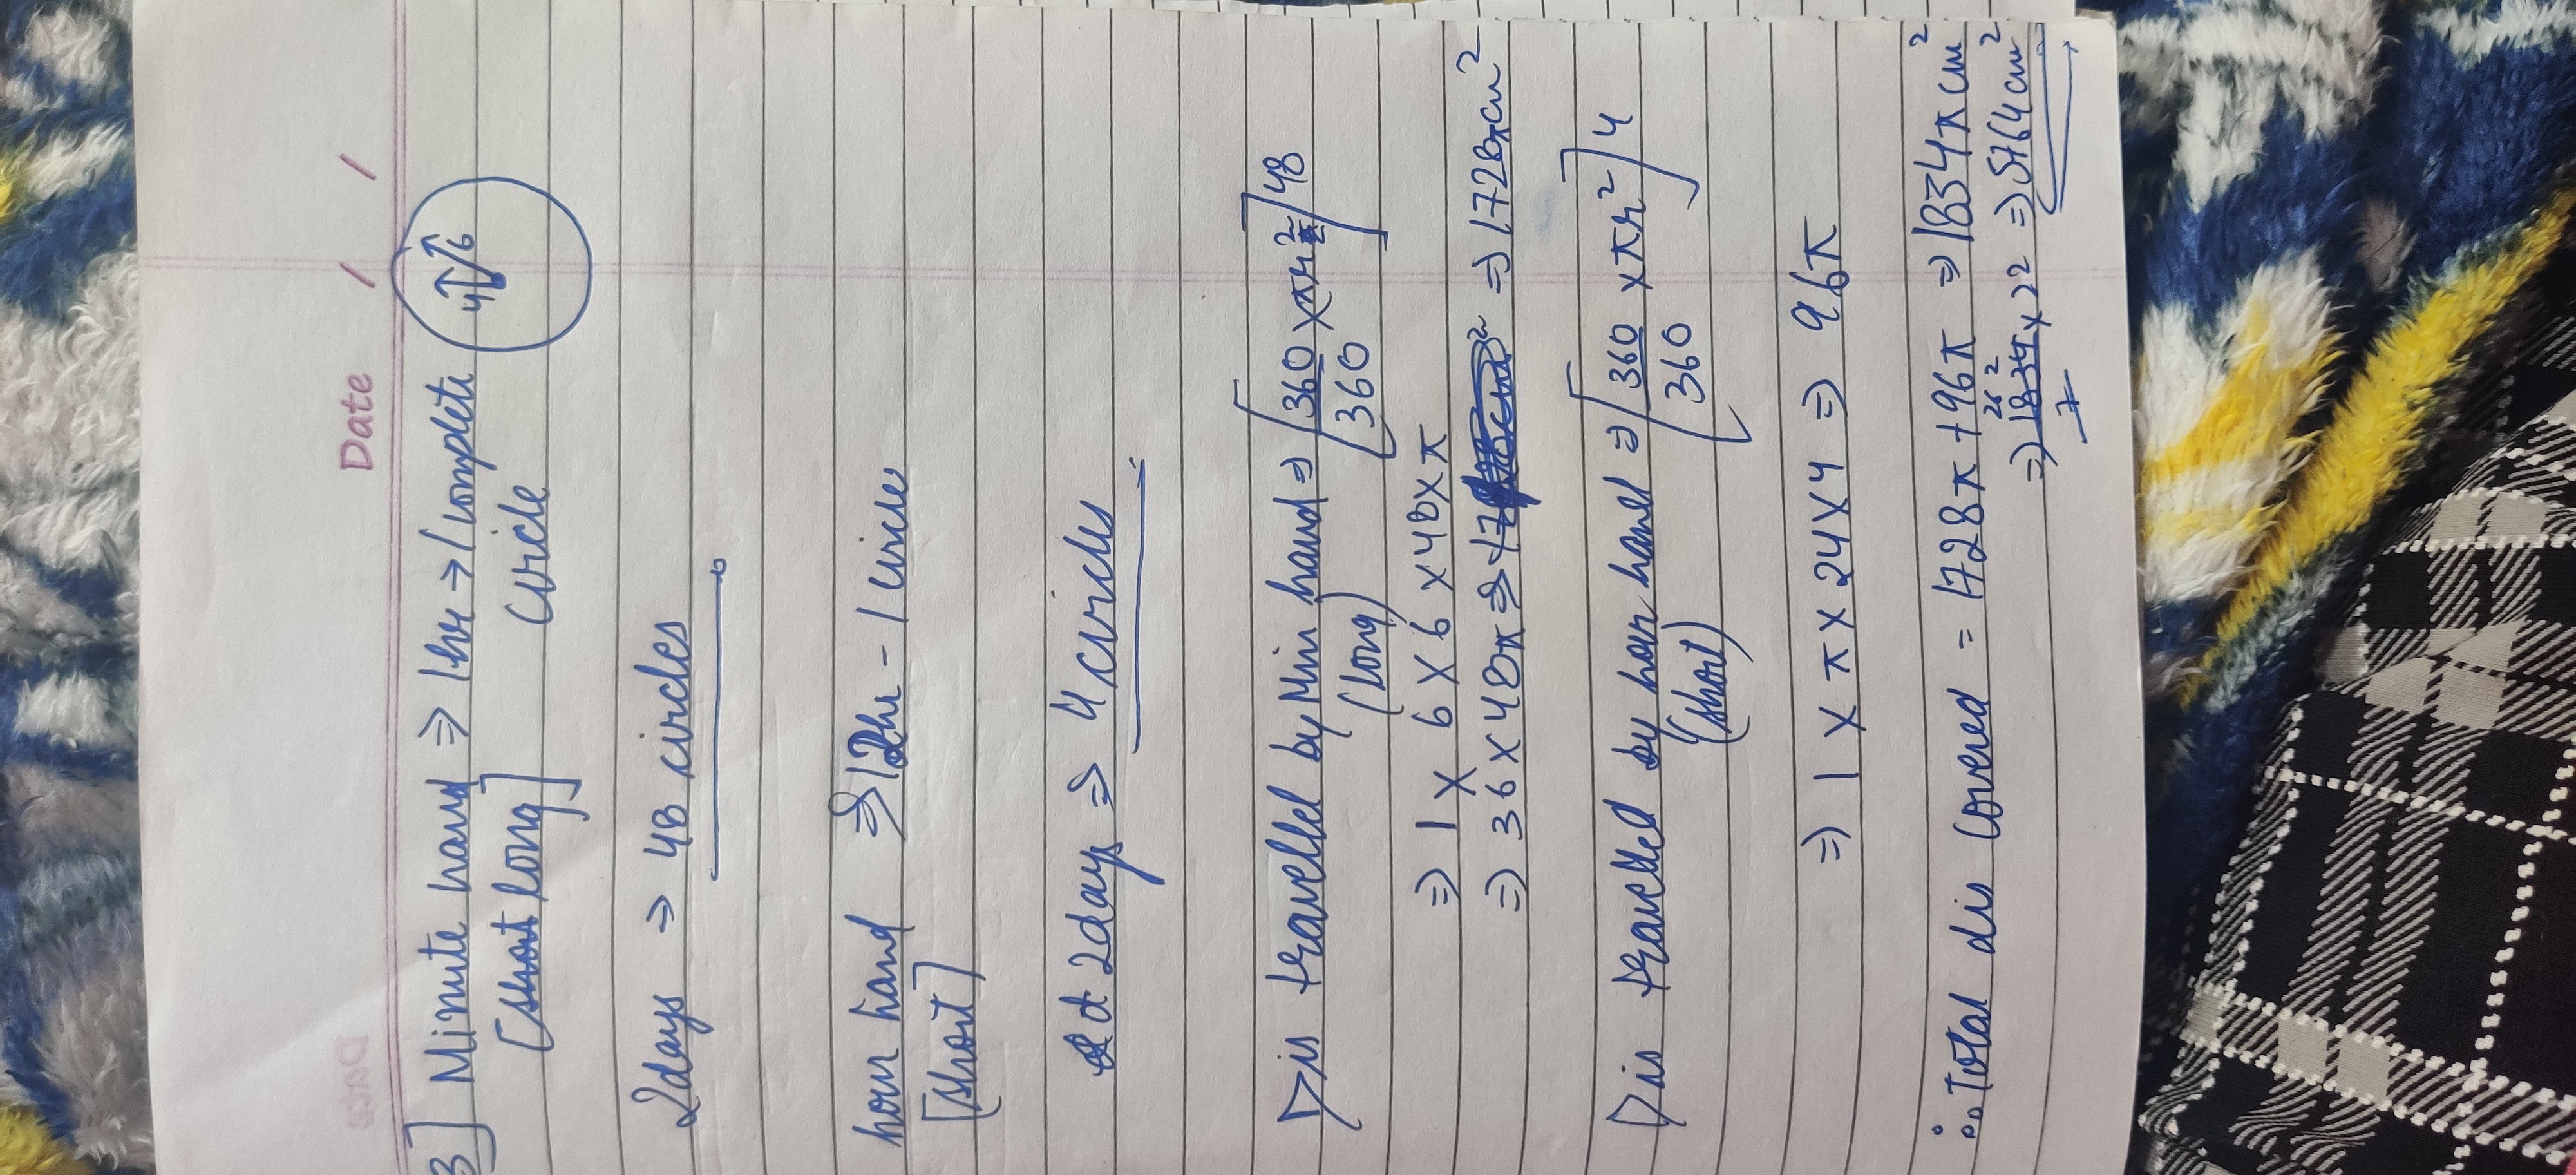 Date / /
3] Minute hand ⇒ 1hr → 1 complete circle
[short long]
4 6
2days ⇒ 48 circles
hour hand ⇒ 12hr - 1 circle
[short]
at 2day ⇒ 4 circles
Dis travelled by Min hand ⇒ [360/360 × πr²] 48
(long)
⇒ 1 × 6 × 6 × 48 × π
⇒ 36 × 48π ⇒ 1728πcm²
Dis travelled by hour hand ⇒ [360/360 × πr²] 4
(short)
⇒ 1 × π × 24 × 4 ⇒ 96π
∴ Total dis covered = 1728π + 96π ⇒ 1834πcm²
262
⇒ 1834/7 × 22 ⇒ 5764cm²